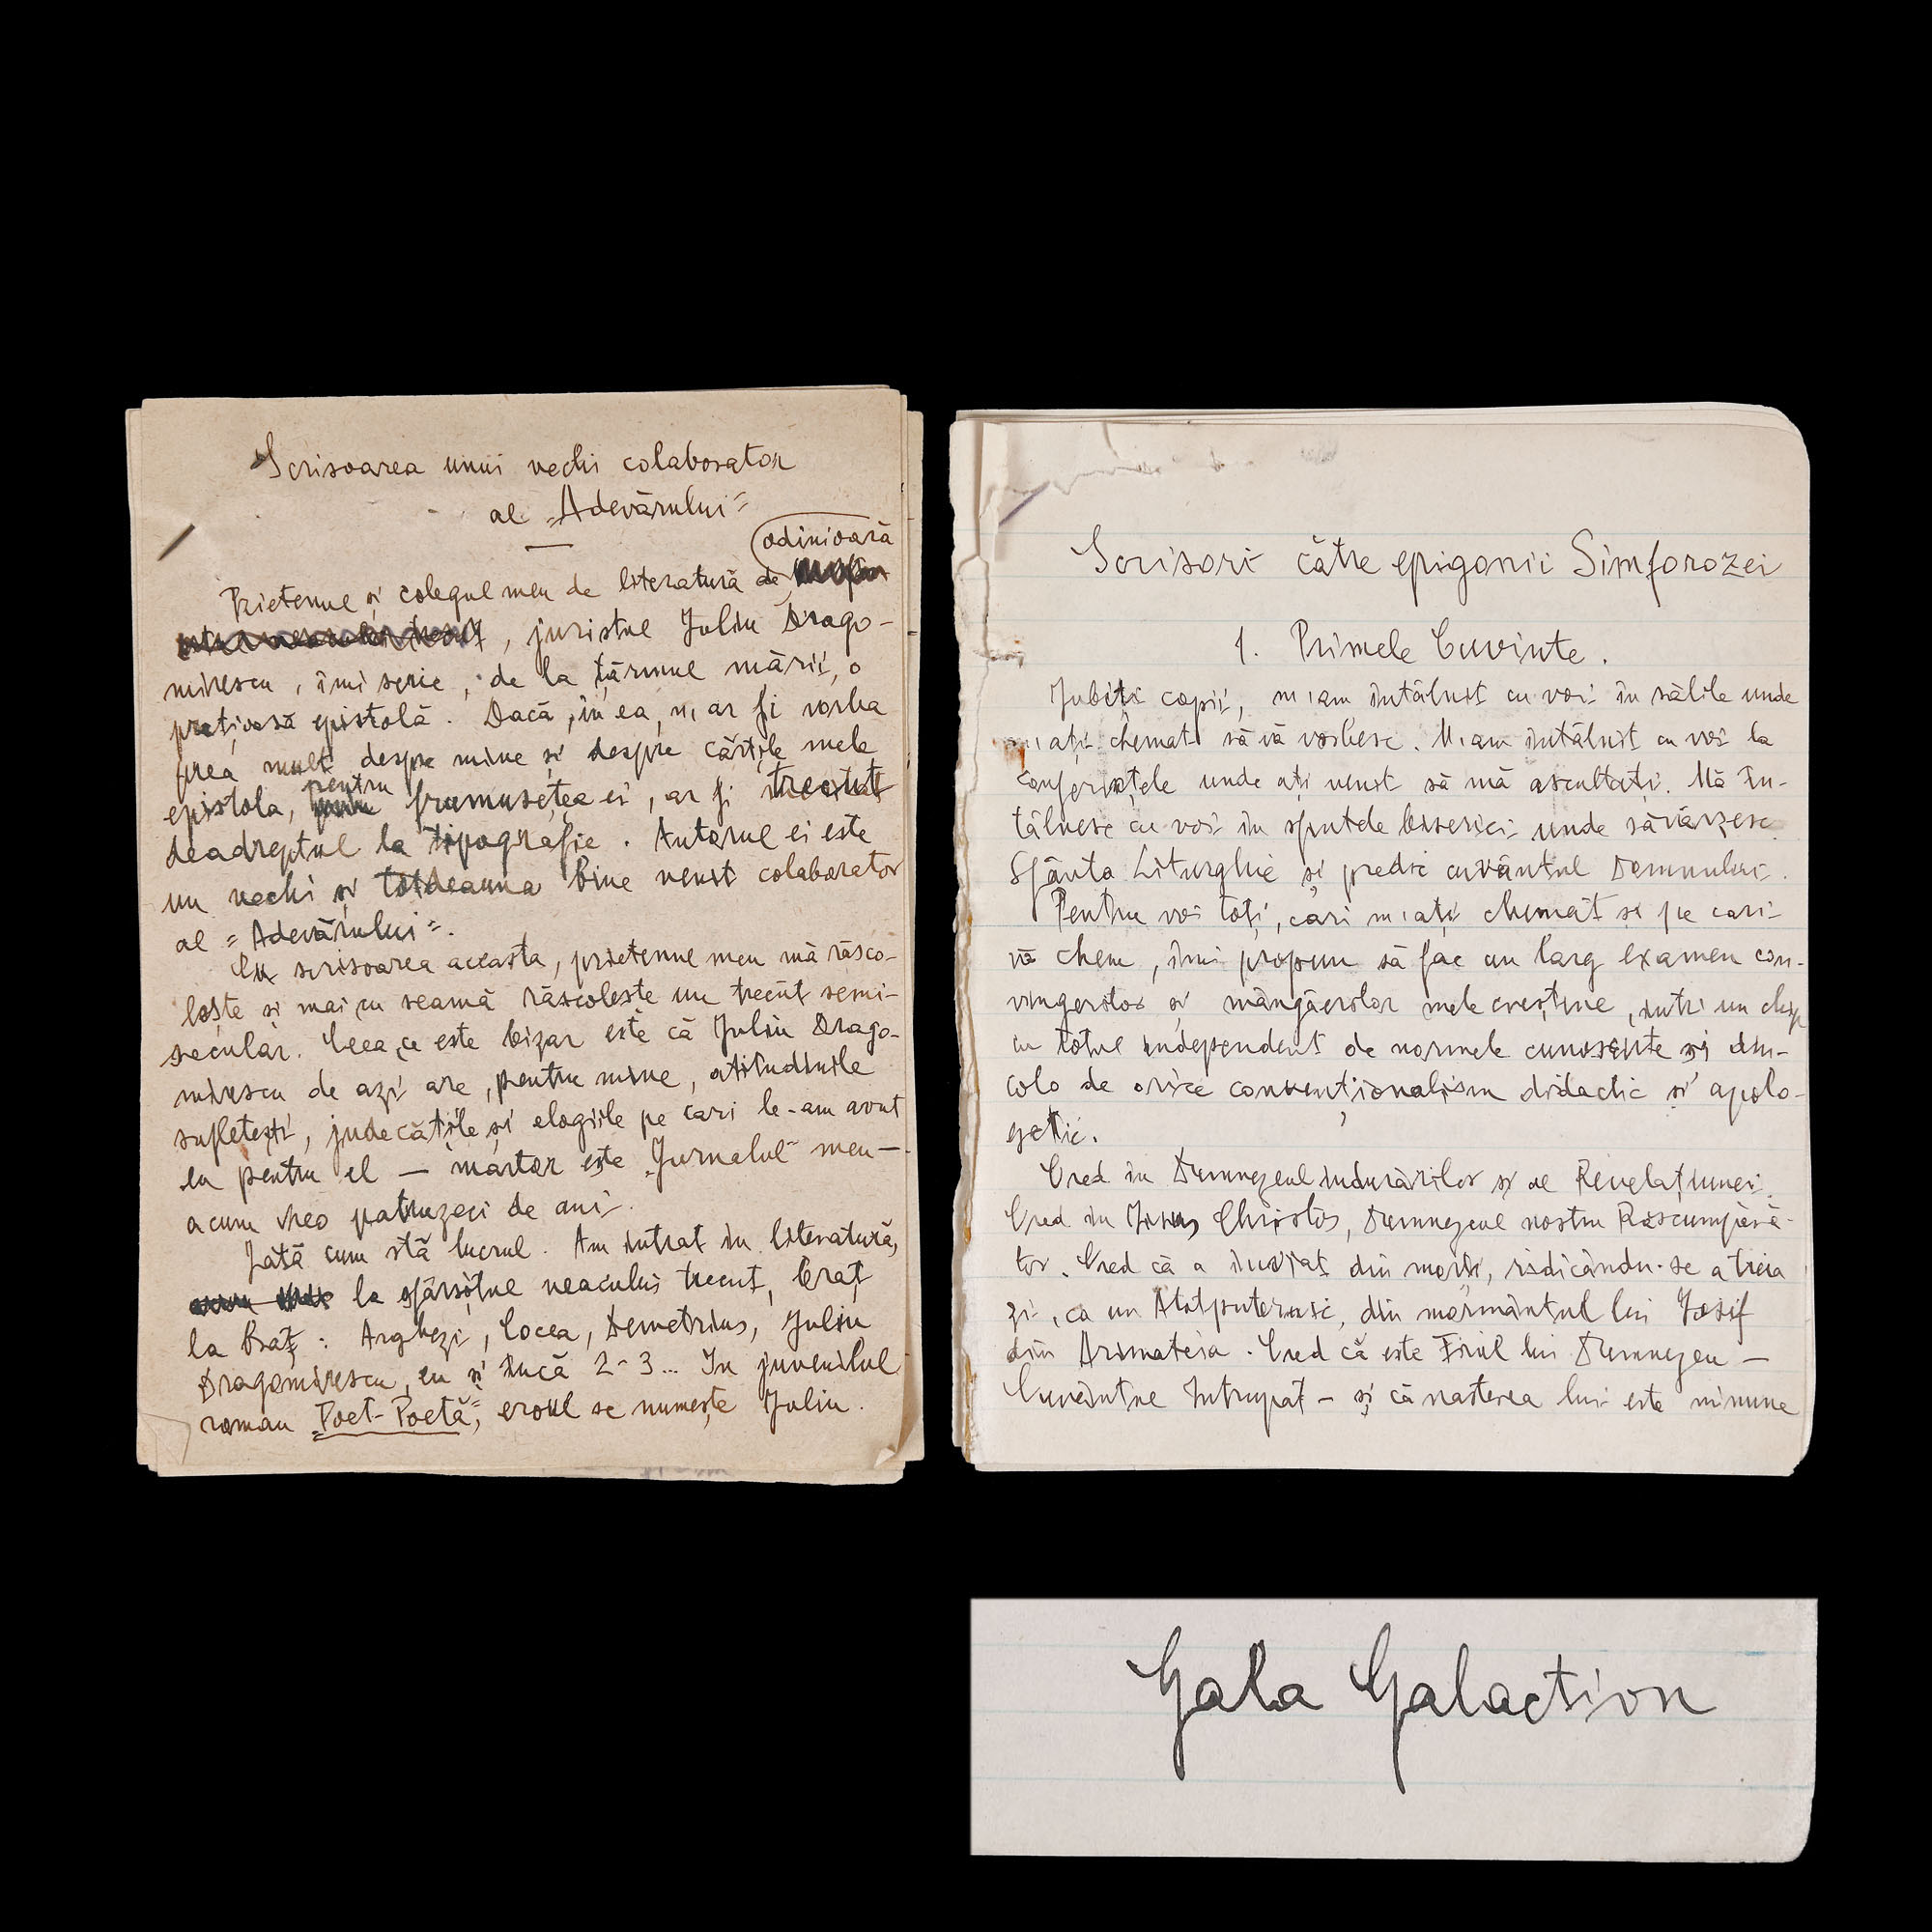 Scrisoarea unui vechi colaborator
al „Adevărului"
odinioară
Prietenul și colegul meu de literatură de
, juristul Juliu Drago-
mirescu, îmi scrie, de la țărmul mării, o
prețioasă epistolă. Dacă, în ea, n'ar fi vorba
prea mult despre mine și despre cărțile mele
pentru
epistola, frumusețea ei, ar fi trecut
deadreptul la tipografie. Autorul ei este
un vechi și totdeauna bine venit colaborator
al „Adevărului".
Cu scrisoarea aceasta, prietenul meu mă răsco-
lește și mai cu seamă răscolește un trecut semi-
secular. Ceea ce este bizar este că Juliu Drago-
mirescu de azi are, pentru mine, atitudinile
sufletești, judecățile și elogiile pe cari le-am avut
eu pentru el — martor este „Jurnalul" meu —
acum vreo patruzeci de ani.
Iată cum stă lucrul. Am intrat în literatură,
la sfârșitul veacului trecut, braț
la braț: Arghezi, Cocea, Demetrius, Juliu
Dragomirescu, eu și încă 2-3... In juvenilul
roman „Poet-Poetă", eroul se numește Juliu.
Scrisori către epigonii Simforozei
1. Primele Cuvinte.
Iubiți copii, m'am întâlnit cu voi în sălile unde
m'ați chemat să vă vorbesc. M'am întâlnit cu voi la
conferințele unde ați venit să mă ascultați. Mă în-
tâlnesc cu voi în sfintele biserici unde săvârzesc
Sfânta Liturghie și predic cuvântul Domnului.
Pentru voi toți, cari m'ați chemat și pe cari
vă chem, îmi propun să fac un larg examen con-
vingerilor și mângâerilor mele creștine, intr'un chip
cu totul independent de normele cunoscute și din-
colo de orice convenționalism didactic și apolo-
getic.
Cred in Dumnezeul indurărilor și al Revelațiunei.
Cred in Iisus Christos, Dumnezeul nostru Răscumpără-
tor. Cred că a inviat din morți, ridicându-se a treia
zi, ca un Atotputernic, din mormântul lui Iosif
din Arimateia. Cred că este Fiiul lui Dumnezeu —
Cuvântul Intrupat — și că nașterea lui este minune
Gala Galaction